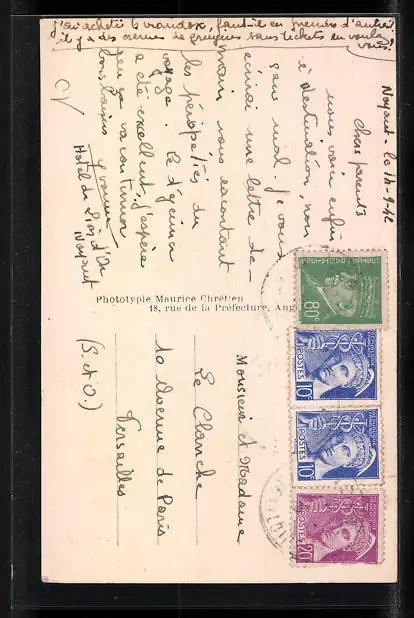 j'ai acheté 2 camembert, faut-il en prendre d'autres
il y a des cremes de gruyères sans tickets en voulez
vous?
Noyant - le 14-9-42
Chers parents
nous voici enfin
à destination, non
sans mal. Je vous
écrirai une lettre de-
main vous racontant
les péripéties du
voyage. Le déjeuner
a été excellent, j'espère
que ça va continuer
bons baisers Yvonne
Hotel du Lion d'Or
Noyant
Phototypie Maurice Chrétien
18, rue de la Préfecture, Ang
Monsieur et Madame
Le Clanche
10 Avenue de Paris
Versailles
(S. et O.)
80c
POSTES 10c
POSTES 10c
POSTES 20c